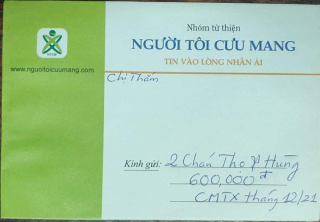 Nhóm từ thiện
NGƯỜI TÔI CƯU MANG
TIN VÀO LÒNG NHÂN ÁI
www.nguoitoicuumang.com
Chị Thắm
Kính gửi: 2 Cháu Thọ & Hưng
600,000 đ
CMTX tháng 12/21